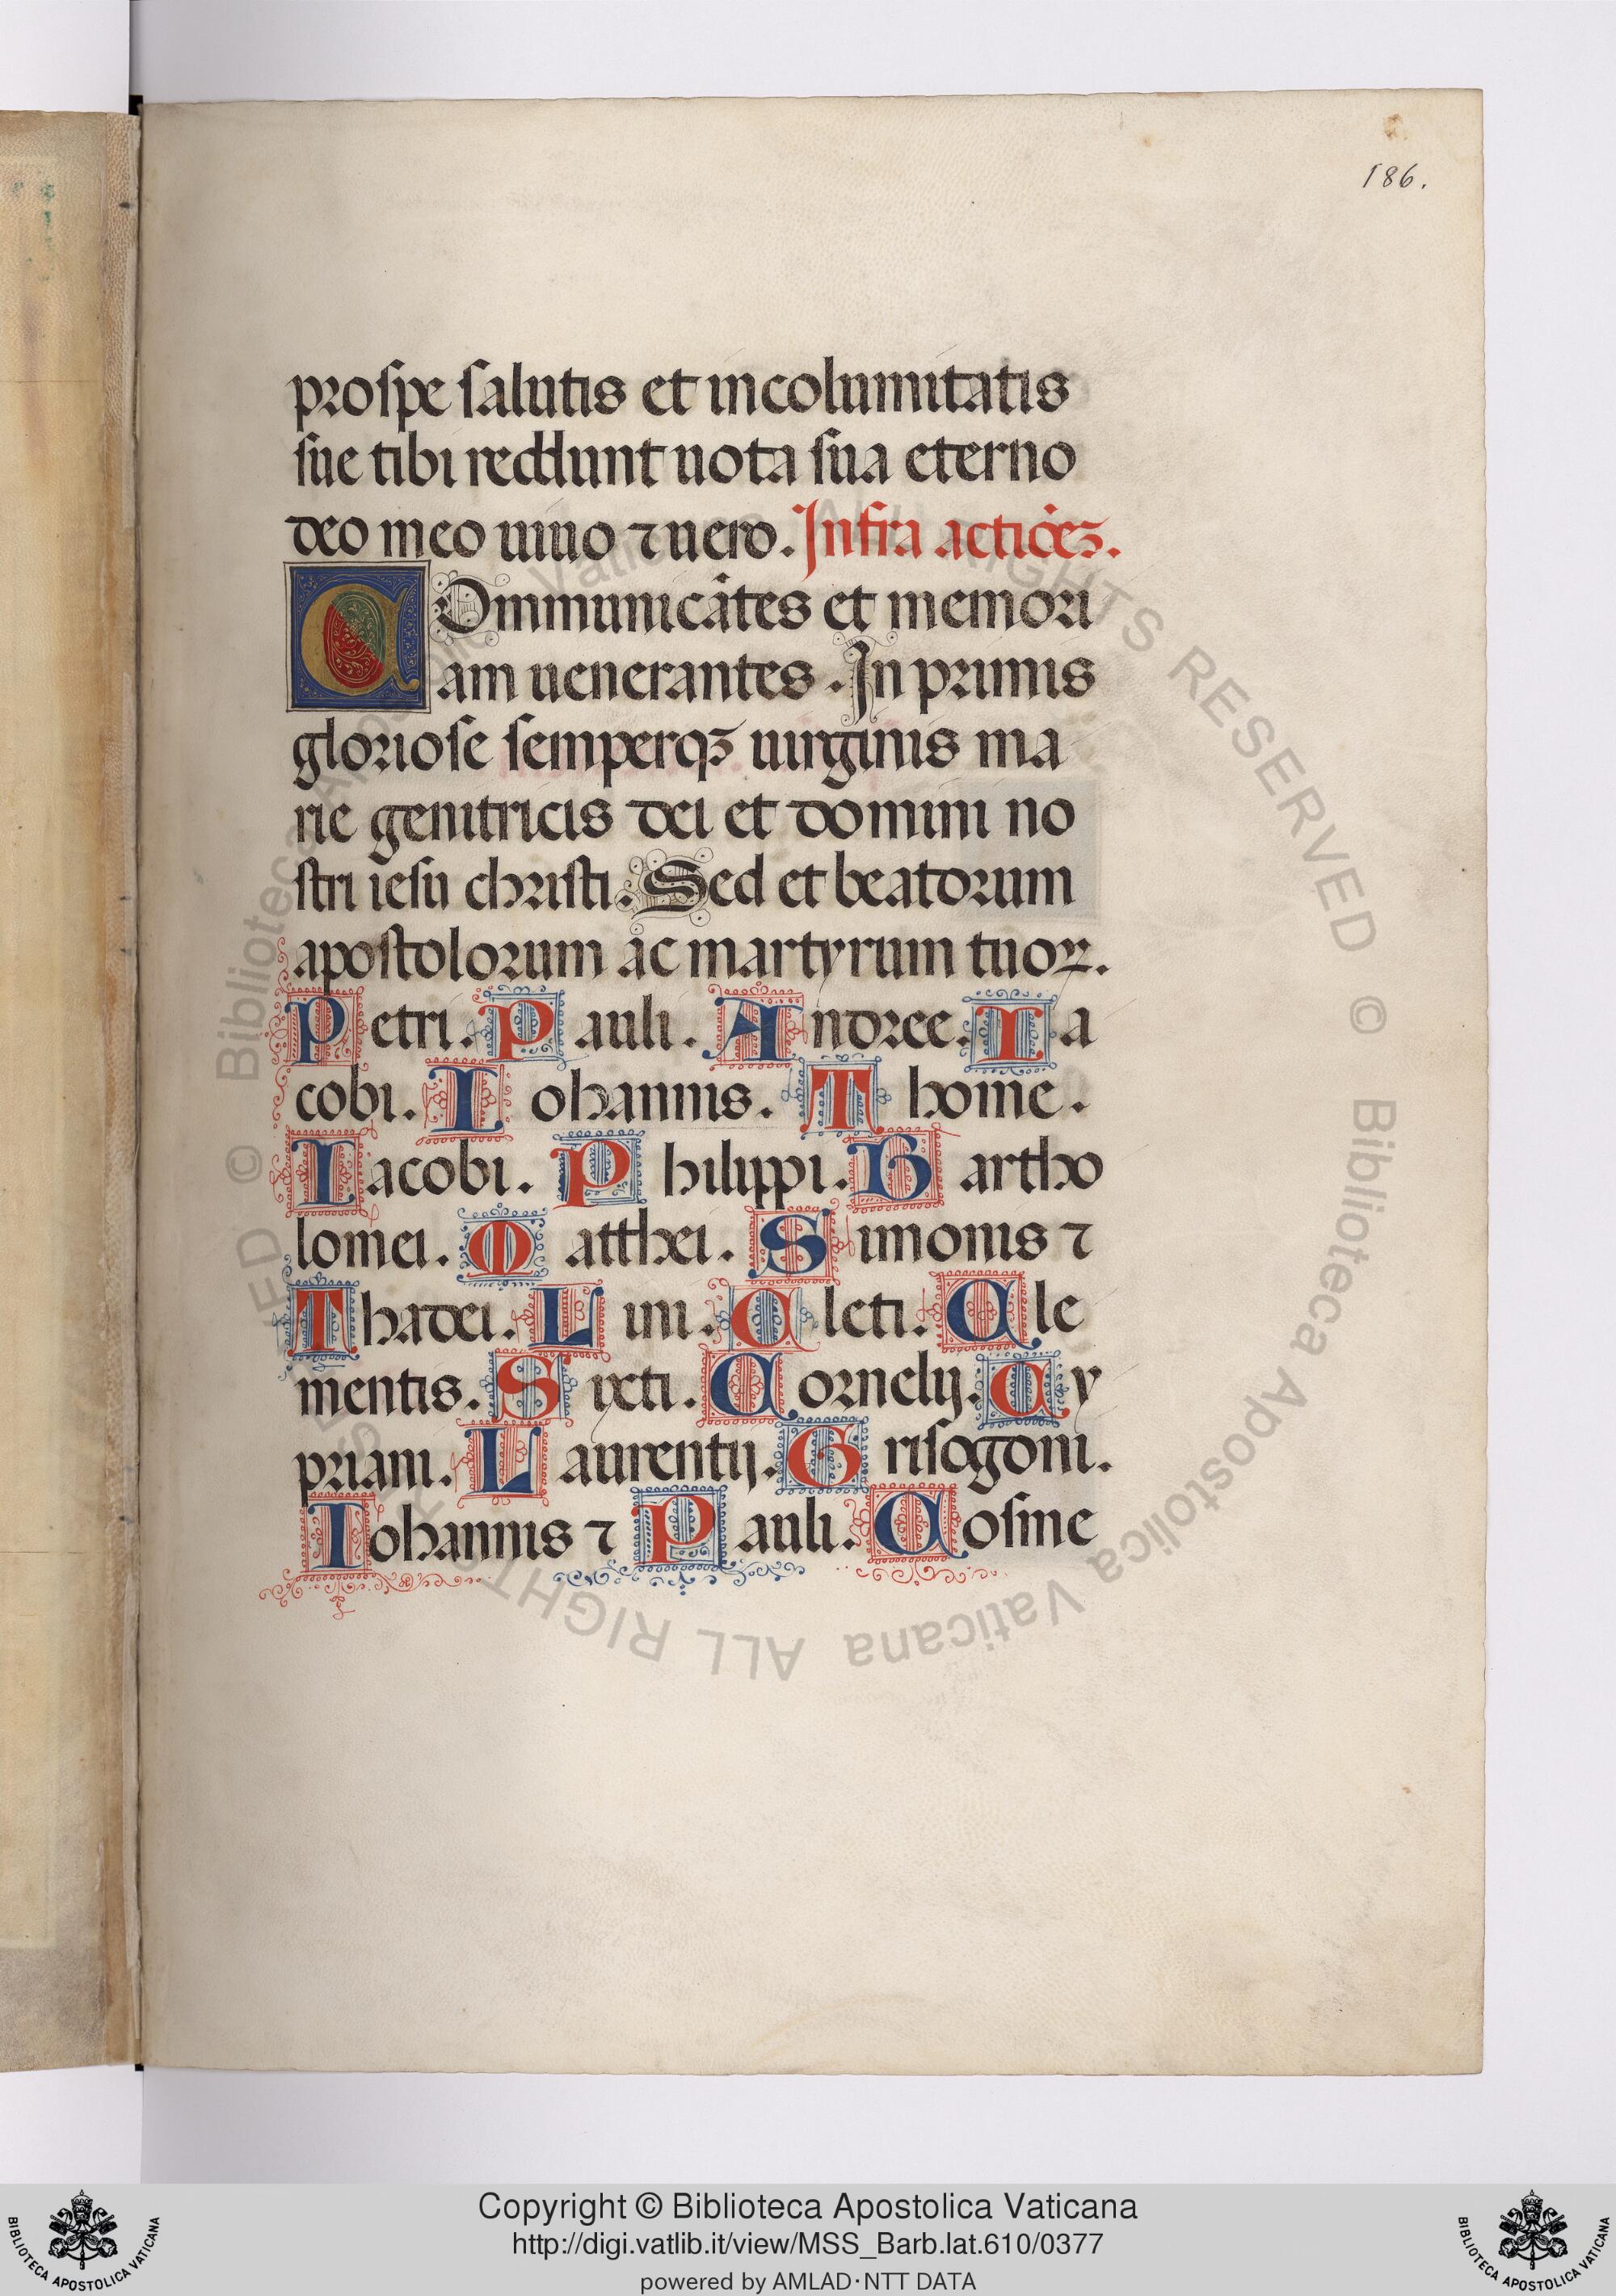 186.
pro spe salutis et incolumitatis
sue tibi reddunt uota sua eterno
deo meo uiuo ⁊ uero. Infra actiōēꝫ.
COmmunicātes et memori
am uenerantes. In primis
gloriose semperqꝫ uirginis ma
rie genitricis dei et domini no
stri iesu christi. Sed et beatorum
apostolorum ac martyrum tuoꝝ.
Petri. Pauli. Andree. Ia
cobi. Iohannis. Thome.
Iacobi. Philippi. Bartho
lomei. Matthei. Simonis ⁊
Thadei. Lini. Cleti. Cle
mentis. Sixti. Cornelij. Cy
priani. Laurentij. Grisogoni.
Iohannis ⁊ Pauli. Cosme
© Biblioteca Apostolica Vaticana ALL RIGHTS RESERVED © Biblioteca Apostolica Vaticana ALL RIGHTS RESERVED
Copyright © Biblioteca Apostolica Vaticana
http://digi.vatlib.it/view/MSS_Barb.lat.610/0377
powered by AMLAD·NTT DATA
BIBLIOTECA APOSTOLICA VATICANA
BIBLIOTECA APOSTOLICA VATICANA